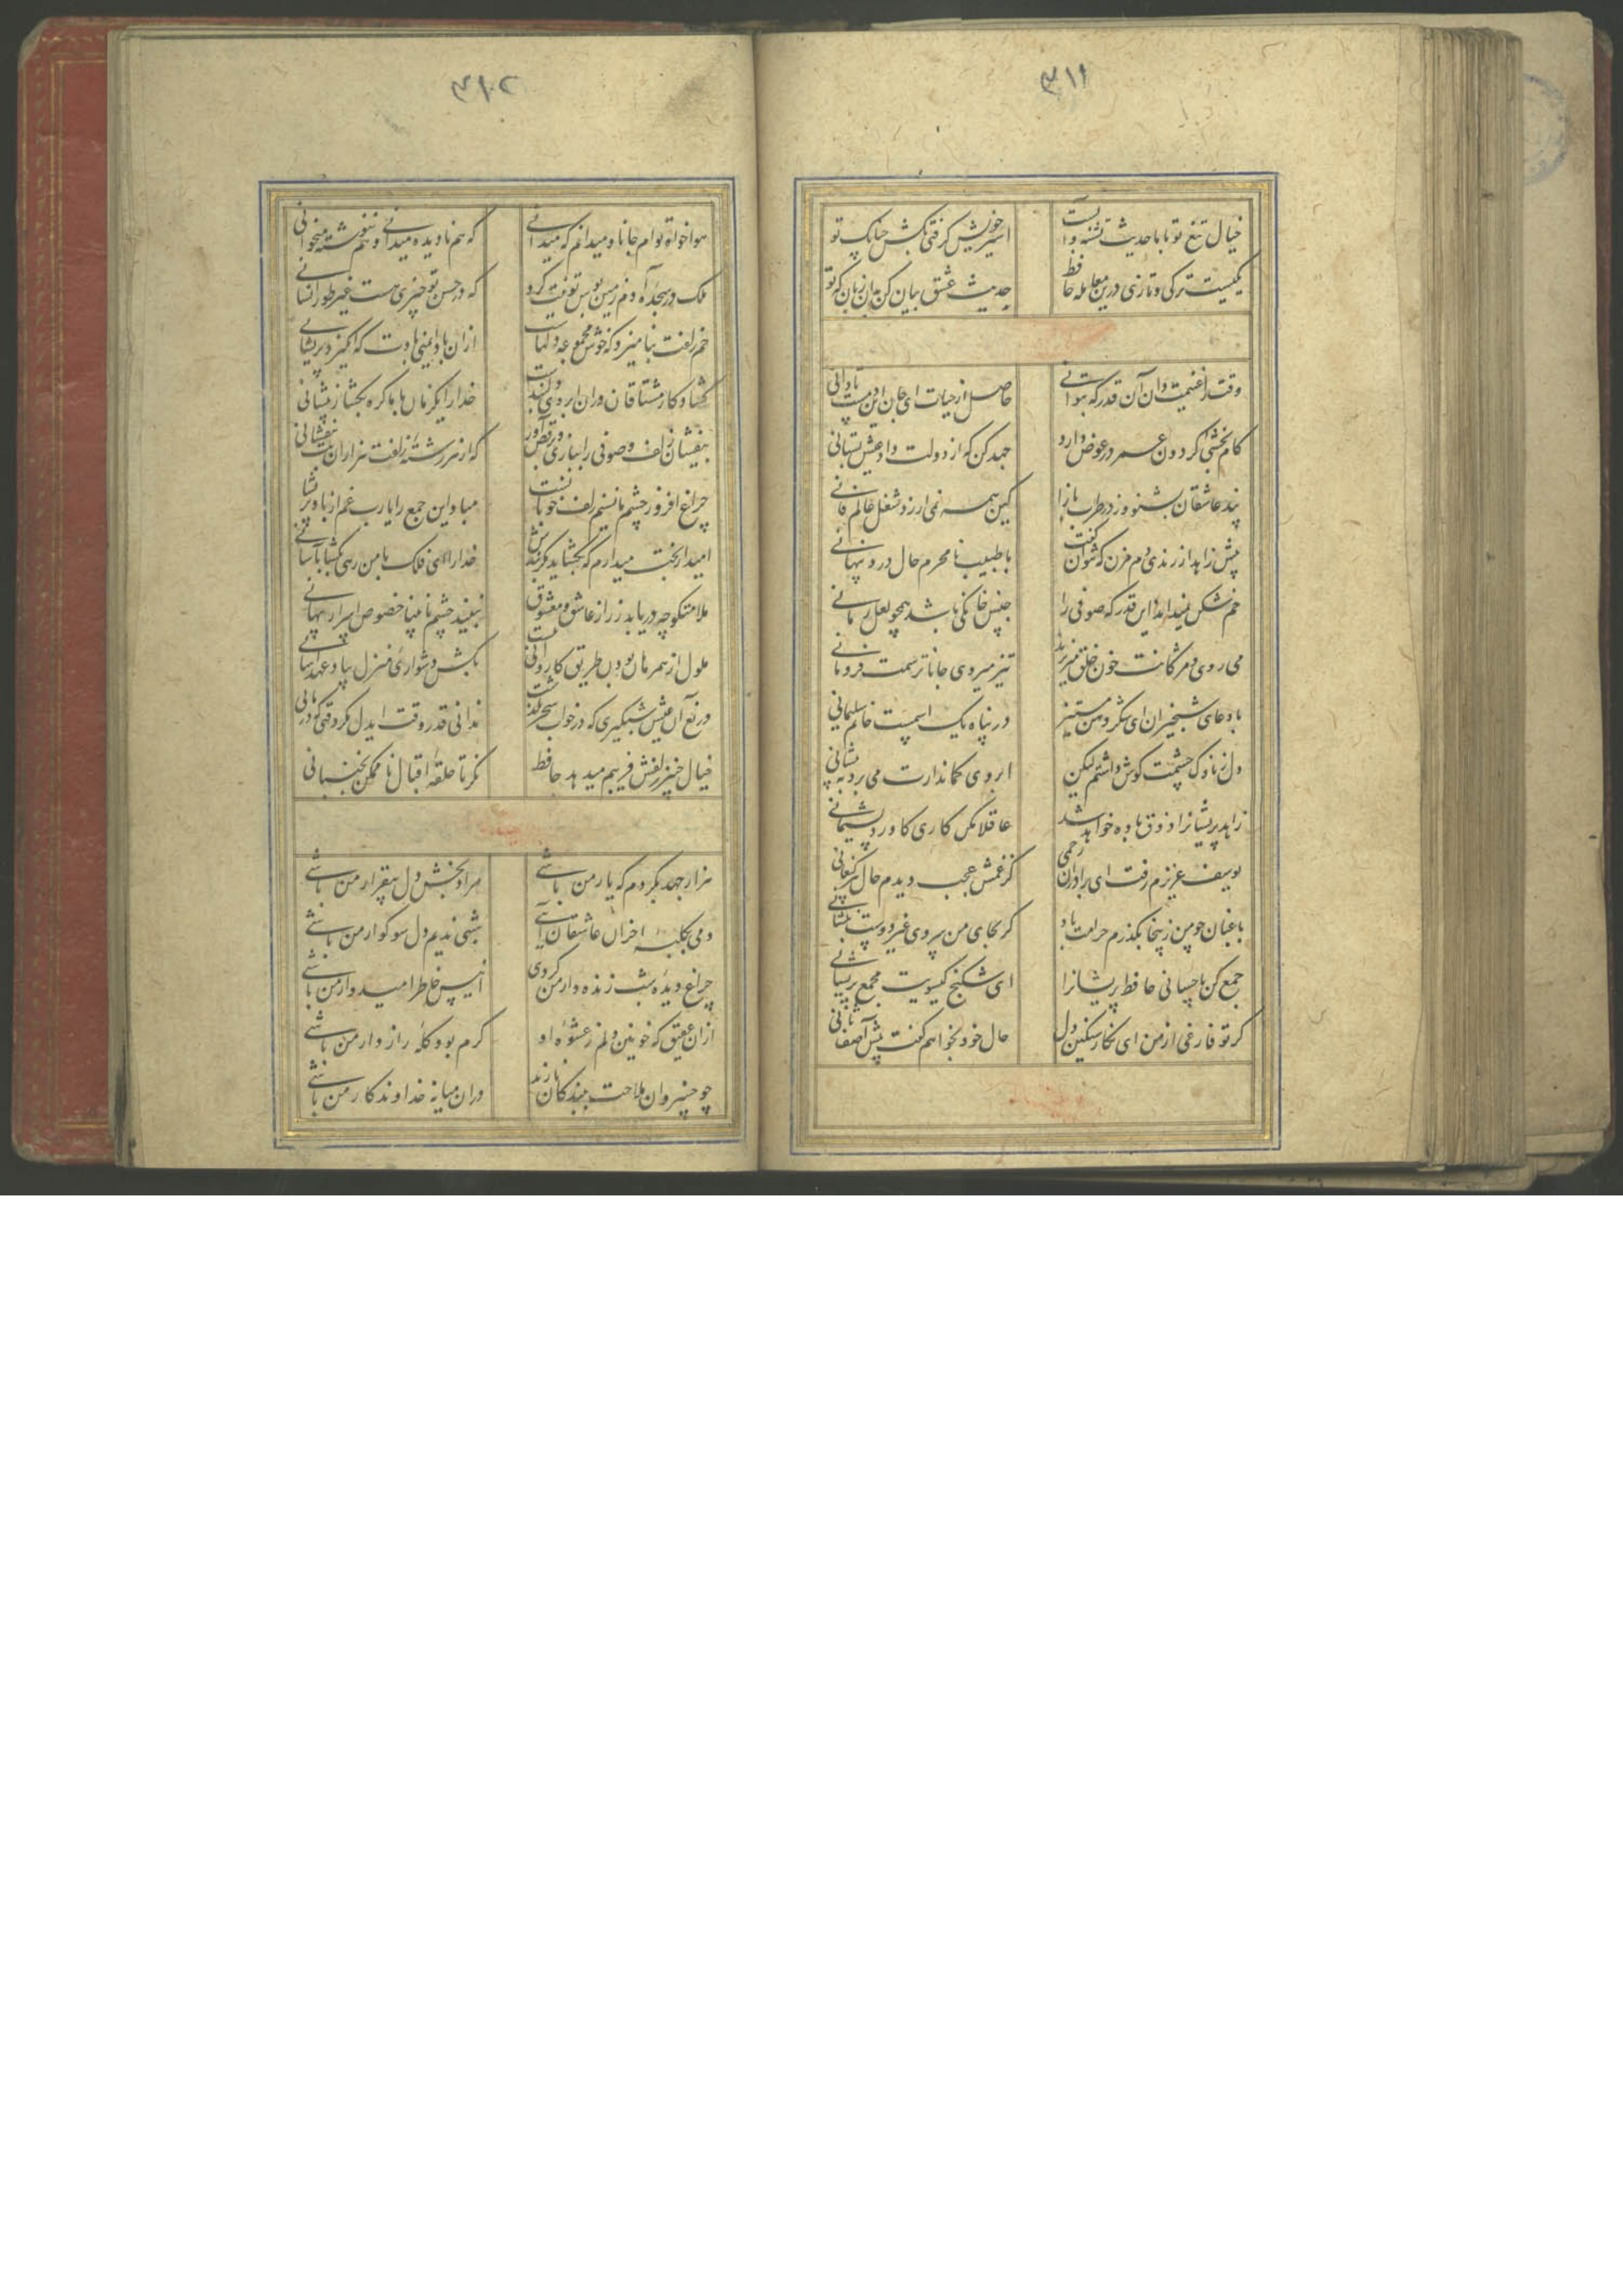 ۳۱۱
خیال تیغ تو با ما حدیث تشنه و آبست
اسیر خویش گرفتی بکش چنانک تو
یکیست ترکی و تازی درین معامله حافظ
حدیث عشق بیان کن بدان زبان که تو
وقت را غنیمت دان آن قدر که بتوانی
حاصل از حیات ای جان این دمست تا دانی
کام بخشی گردون عمر در عوض دارد
جهد کن که از دولت داد عیش بستانی
پند عاشقان بشنو وز در طرب بازا
کین همه نمی ارزد شغل عالم فانی
پیش زاهد از رندی دم مزن که نتوان گفت
با طبیب نامحرم حال درد پنهانی
خم شکن نمیداند این قدر که صوفی را
جنس خانگی باشد همچو لعل رمانی
می روی و مژگانت خون خلق میریزد
تیز میروی جانا ترسمت فرو مانی
با دعای شبخیزان ای شکردهن مستیز
در پناه یک اسمست خاتم سلیمانی
دل ز ناوک چشمت گوش داشتم لیکن
ابروی کماندارت می برد به پیشانی
زاهد پریشانرا ذوق باده خواهد شد
عاقلا مکن کاری کاورد پشیمانی
یوسف عزیزم رفت ای برادران رحمی
کز غمش عجب دیدم حال پیر کنعانی
باغبان چو من زینجا بگذرم حرامت باد
گر بجای من سروی غیر دوست بنشانی
جمع کن باحسانی حافظ پریشانرا
ای شکنج گیسویت مجمع پریشانی
گر تو فارغی از من ای نگار سنگین دل
حال خود بخواهم گفت پیش آصف ثانی
۳۱۲
هواخواه توام جانا و میدانم که میدانی
که هم نادیده میدانی و هم ننوشته میخوانی
ملک در سجده آدم زمین بوس تو نیت کرد
که در حسن تو چیزی هست غیر طور انسانی
خم زلفت بنامیزد که خوش مجموعه دلهاست
از آن باد ایمنی بادت که انگیزد پریشانی
گشاد کار مشتاقان در آن ابروی دلبندست
خدا را یکزمان با ما گره بگشا ز پیشانی
بیفشان زلف و صوفی را ببازی و رقص آور
که از هر رشته زلفت هزاران بت بیفشانی
چراغ افروز چشم ما نسیم زلف خوبانست
مباد این جمع را یارب غم از باد پریشانی
امید از بخت میدارم که بگشاید کمربندش
خدا را ای فلک با من رهی بگشا بآسانی
ملامتگو چه دریابد ز راز عاشق و معشوق
نبیند چشم نابینا خصوص اسرار پنهانی
ملول از همرهان بودن طریق کاروانی نیست
بکش دشواری منزل بیاد عهد آسانی
دریغ آن عیش شبگیری که در خواب سحر بگذشت
ندانی قدر وقت ایدل مگر وقتی که درمانی
خیال چنبر زلفش فریبم میدهد حافظ
نگر تا حلقه اقبال ناممکن نجنبانی
هزار جهد بکردم که یار من باشی
مراد بخش دل بیقرار من باشی
دمی بکلبه احزان عاشقان آیی
شبی ندیم دل سوگوار من باشی
چراغ دیده شب زنده دار من گردی
انیس خاطر امیدوار من باشی
از آن عقیق که خونین دلم ز عشوه او
گرم بود گله رازدار من باشی
چو خسروان ملاحت ببندگان نازند
در آن میانه خداوندگار من باشی